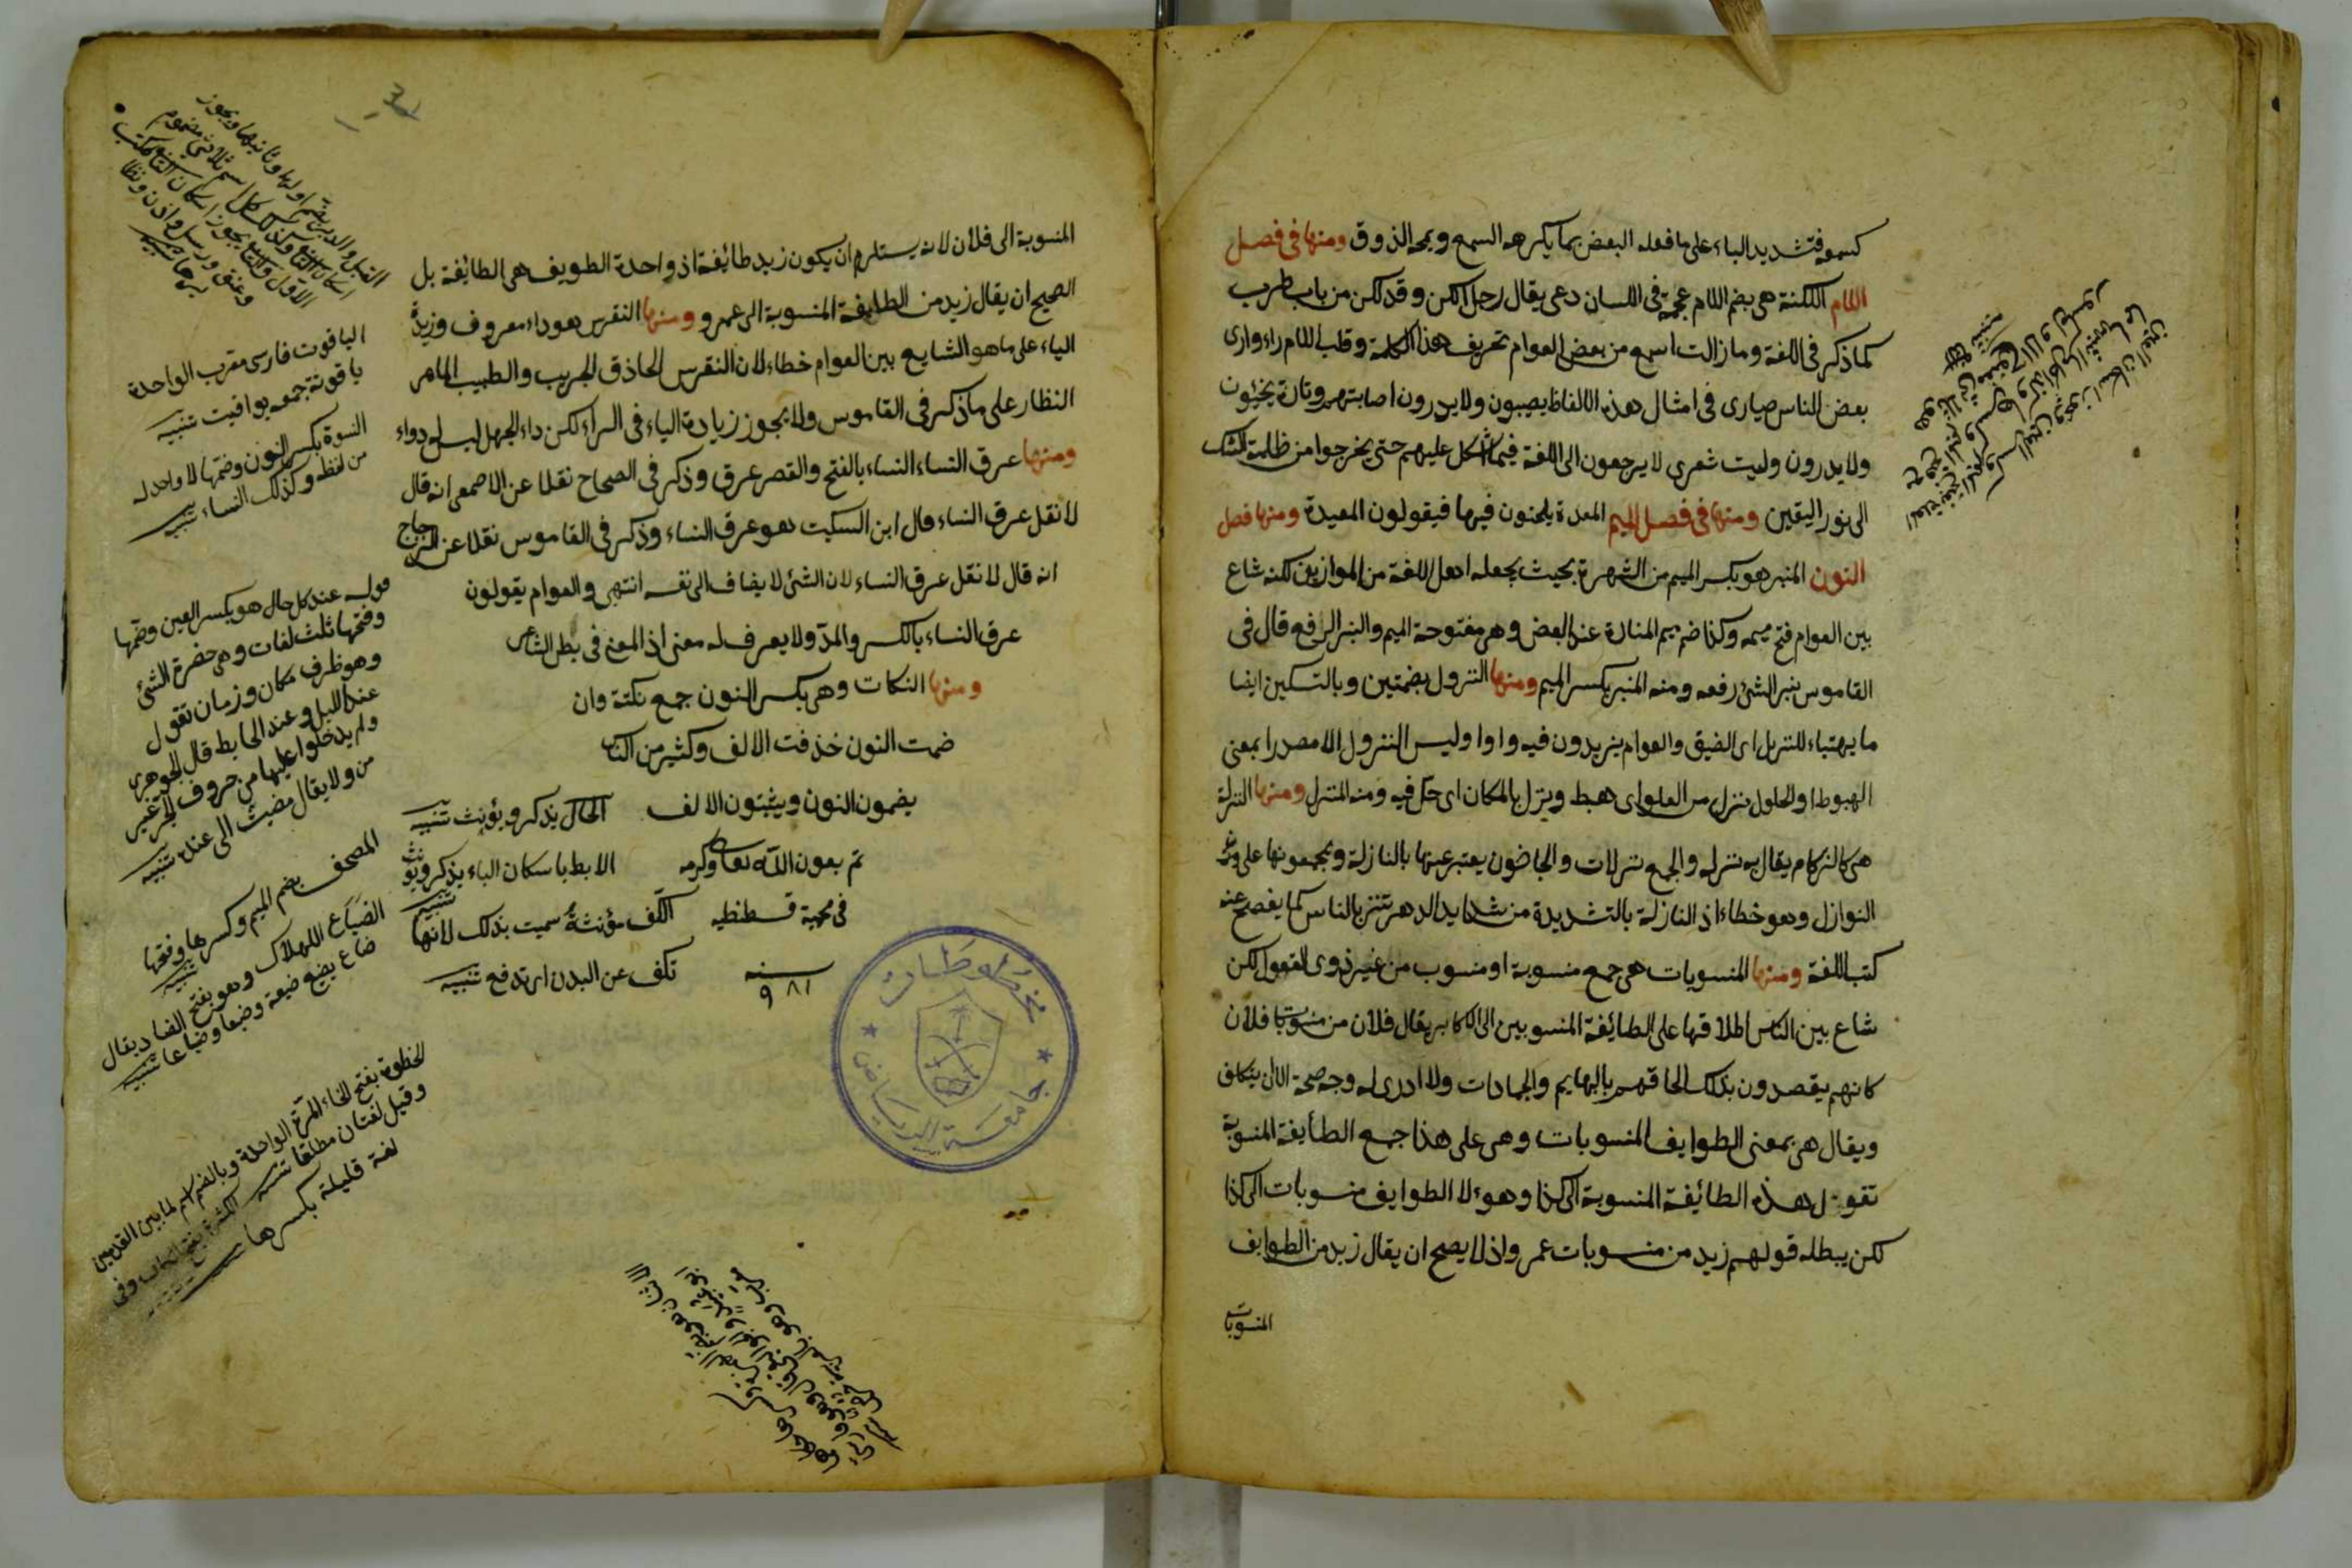 كسموفة تشديد الباء على ما فعله البعض بما يكرهه السمع ويمجه الذوق ومنها فى فصل
اللام اللكنة هى بضم اللام عجمة فى اللسان وعى يقال رجل الكن وقد لكن من باب طرب
كما ذكر فى اللغة وما زالت اسمع من بعض العوام تحريف هذه الكلمة وقلب اللام راء وارى
بعض الناس حيارى فى امثال هذه الالفاظ يصيبون ولا يدرون اصابتهم وتارة يخطئون
ولا يدرون وليت شعرى لا يرجعون الى اللغة فيما اشكل عليهم حتى يخرجوا من ظلمة الشك
الى نور اليقين ومنها فى فصل الميم المعدة يلحنون فيها فيقولون المعيدة ومنها فصل
النون المنبر هو بكسر الميم من الشهرة بحيث يجعله اهل اللغة من الموازين لكنه شاع
بين العوام فتح ميمه وكذا ضم ميم المنارة عند البعض وهى مفتوحة الميم والنبر الرفع قال فى
القاموس نبر الشئ رفعه ومنه المنبر بكسر الميم ومنها النزول بضمتين وبالتسكين ايضا
ما يهيّاء للنزيل اى الضيف والعوام يزيدون فيه واوا وليس النزول الا مصدرا بمعنى
الهبوط او الحلول نزل من العلو اى هبط ونزل بالمكان اى حل فيه ومنه المنزل ومنها النزلة
هى كالزكام يقال به نزلة والجمع نزلات والجاضون يعتبر عنها بالنازلة ويجمعونها على وزن
النوازل وهو خطاء اذ النازلة بالتشديدة من شدايد الدهر تنزل بالناس كما يفصح عنه
كتب اللغة ومنها المنسوبات هى جمع منسوبة او منسوب من غير ذوى العقول لكن
شاع بين الناس اطلاقها على الطائفة المنسوبين الى الاكابر يقال فلان من منسوبات فلان
كانهم يقصدون بذلك الحاقهم بالبهايم والجمادات ولا ادرى له وجه صحة الا ان يتكلف
ويقال هى بمعنى الطوايف المنسوبات وهى على هذا جمع الطايفة المنسوبة
تقول هذه الطائفة المنسوبة الى كذا وهؤلا الطوايف منسوبات الى كذا
لكن يبطله قولهم زيد من منسوبات عمرو اذ لا يصح ان يقال زيد من الطوايف
المنسوبات
المنسوبة الى فلان لانه يستلزم ان يكون زيد طائفة اذ واحدة الطويف هى الطايفة بل
الصحيح ان يقال زيد من الطايفة المنسوبة الى عمرو ومنها النقرس هو داء معروف وزيادة
الياء على ما هو الشايع بين العوام خطاء لان النقرس الحاذق الجريب والطبيب الماهر
النظار على ما ذكر فى القاموس ولا يجوز زيادة الياء فى الراء لكن داء الجهل ليس له دواء
ومنها عرق النساء النساء بالفتح والقصر عرق وذكر فى الصحاح نقلا عن الاصمعى انه قال
لا تقل عرق النساء قال ابن السكيت هو عرق النساء وذكر فى القاموس نقلا عن الزجاج
انه قال لا تقل عرق النساء لان الشئ لا يضاف الى نفسه انتهى والعوام يقولون
عرق النساء بالكسر والمدّ ولا يعرف له معنى اذ المعنى فى بطن الشاعر
ومنها النكات وهى بكسر النون جمع نكتة وان
ضمت النون حذفت الالف وكثير من الناس
يضمون النون ويثبتون الالف
تم بعون الله تعالى وكرمه
فى محمية قسطنطنيه
سنه
٩٨١
الحال يذكر ويؤنث تنبيه
الابط باسكان الباء يذكر ويؤنث
تنبيه
الكف مؤنثة سميت بذلك لانها
تكف عن البدن اى تدفع تنبيه
الياقوت فارسى معرب الواحدة
ياقوتة جمعه يواقيت تنبيه
النسوة بكسر النون وضمها لا واحد له
من لفظه وكذلك النساء تنبيه
قوله عند كل حال هو بكسر العين وضمها
وفتحها ثلث لغات وهى حضرة الشئ
وهو ظرف مكان وزمان تقول
عند الليل وعند الحايط قال الجوهرى
ولم يدخلوا عليها من حروف الجر غير
من ولا يقال مضيت الى عنده تنبيه
المصحف بضم الميم وكسرها وفتحها
تنبيه
الضياع الهلاك وهو بفتح الضاد يقال
ضاع يضيع ضيعة وضيعا وضياعا تنبيه
الخطوة بفتح الخاء المرة الواحدة وبالضم اسم لما بين القدمين
وقيل لغتان مطلقا تنبيه الكثرة بفتح الكاف وفى
لغة قليلة بكسرها
جامعة الرياض